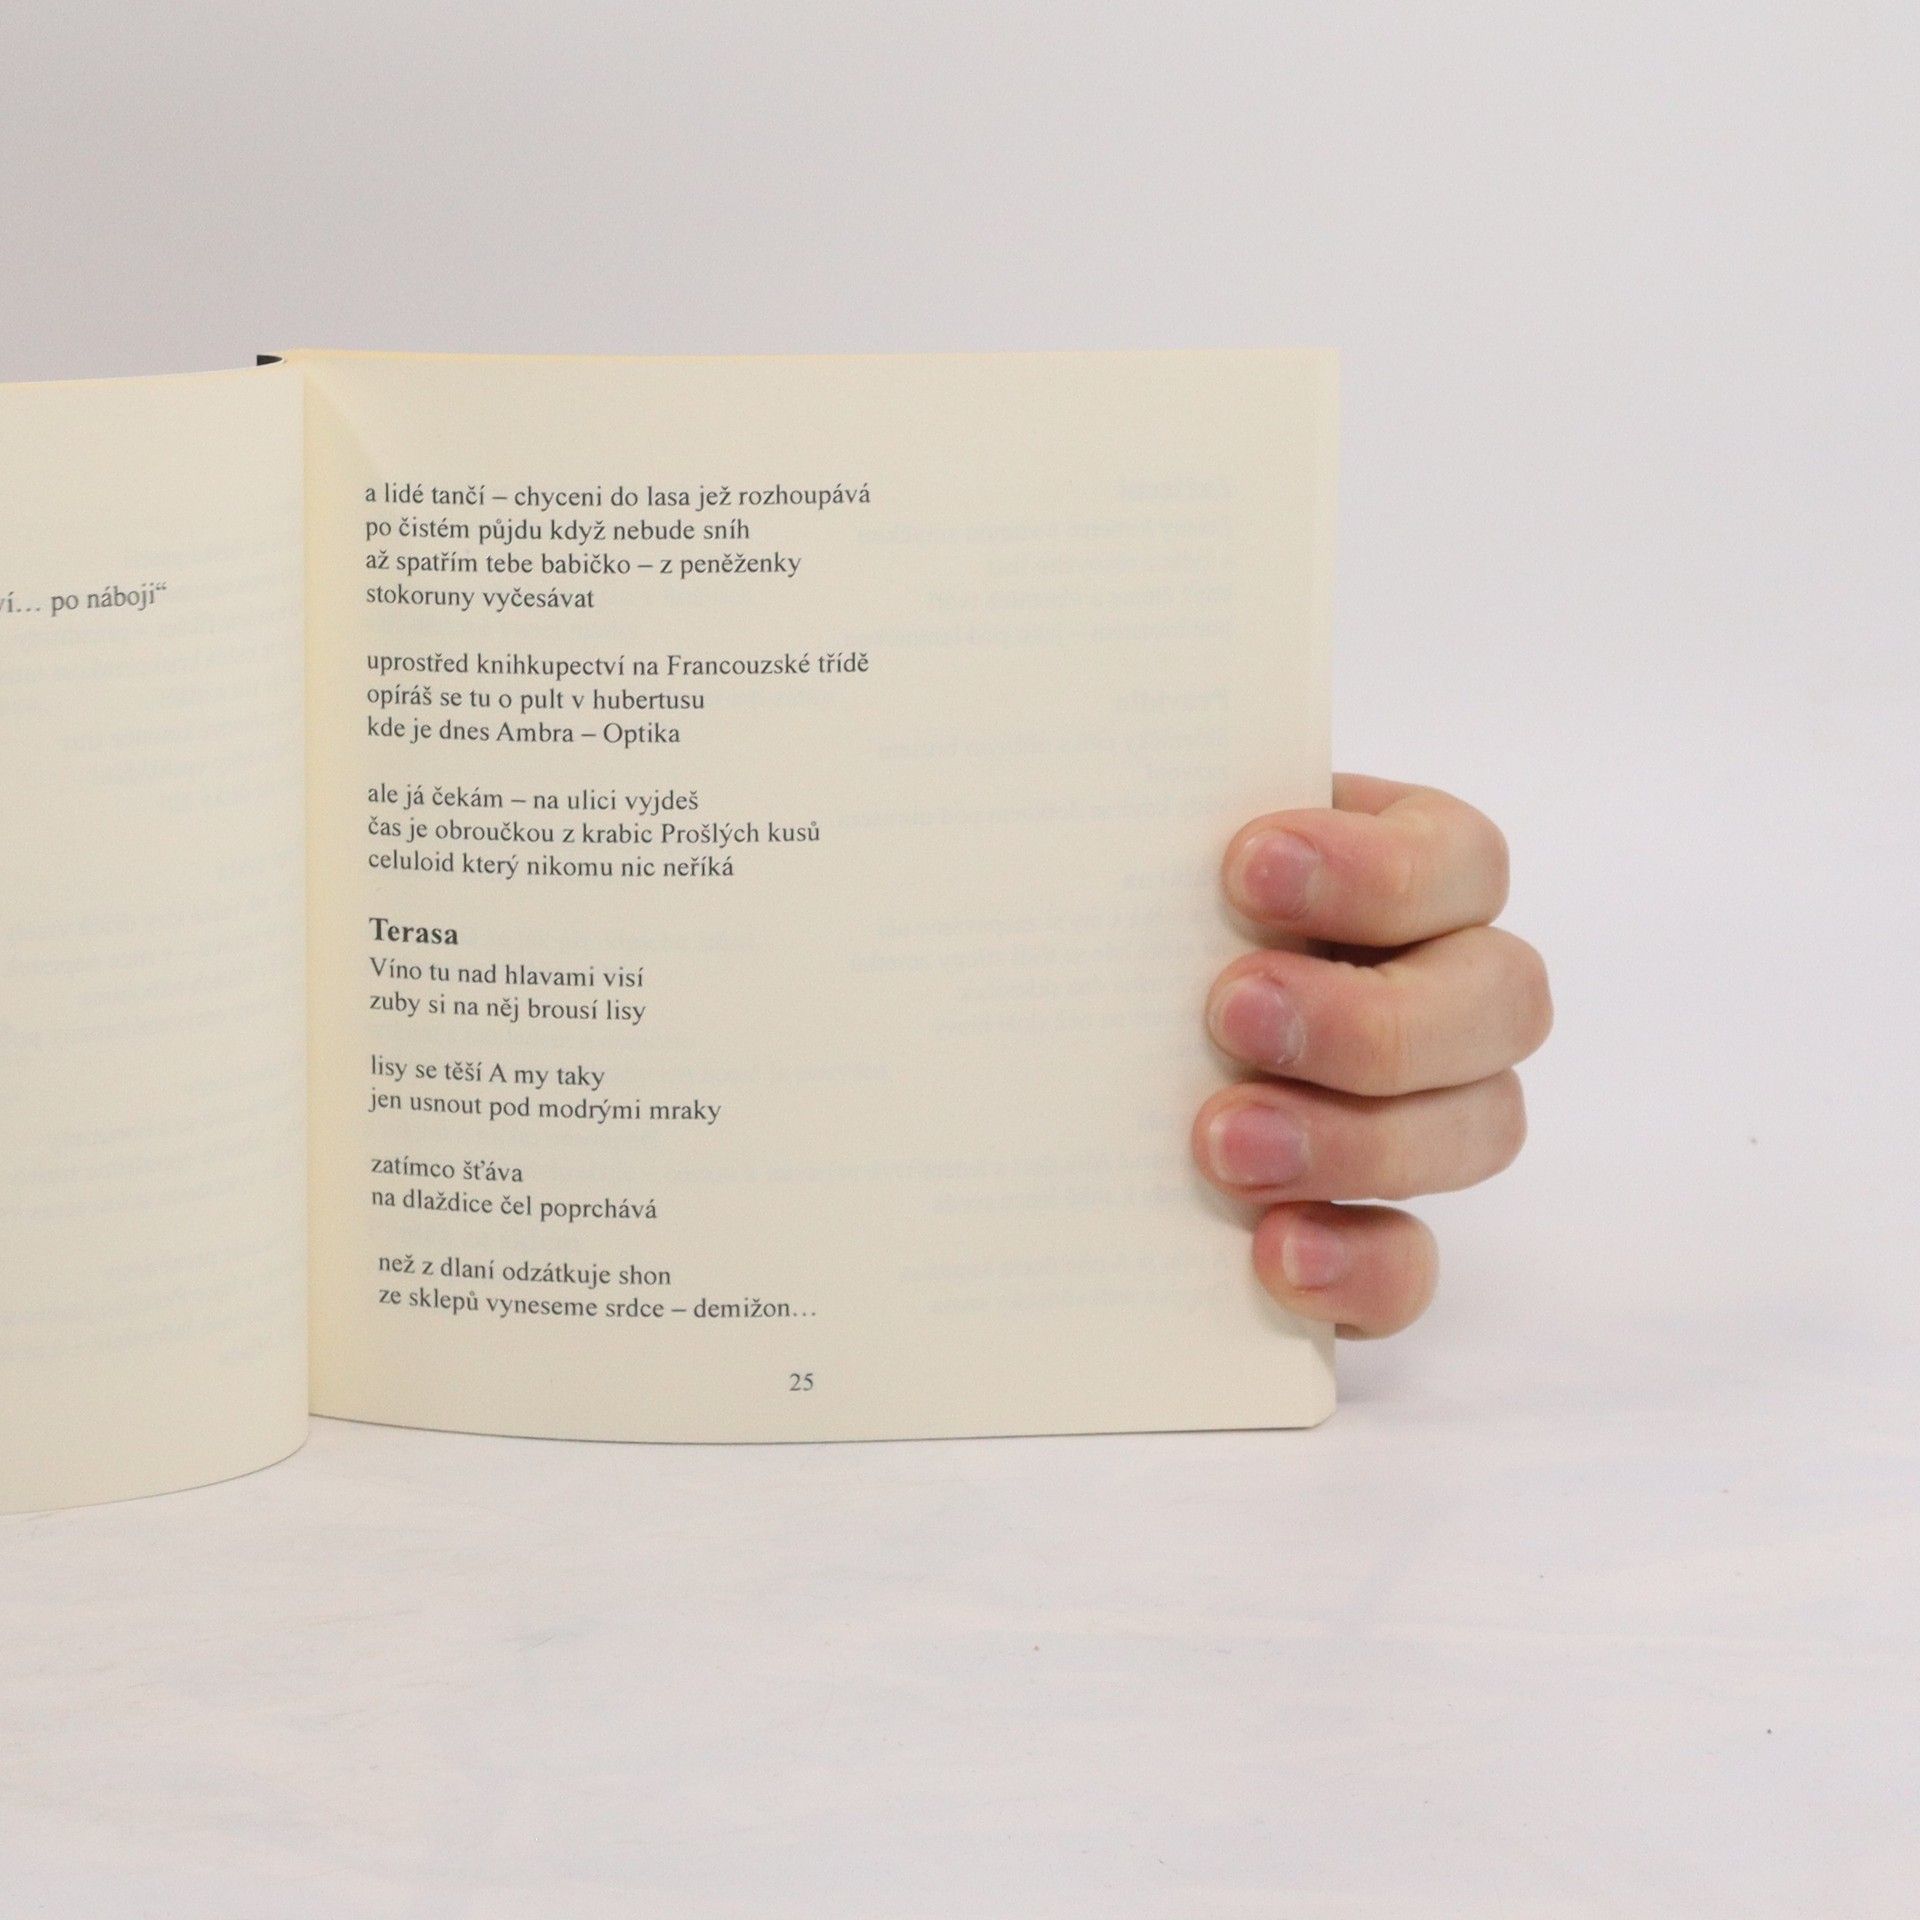 ví… po náboji“
a lidé tančí – chyceni do lasa jež rozhoupává
po čistém půjdu když nebude sníh
až spatřím tebe babičko – z peněženky
stokoruny vyčesávat
uprostřed knihkupectví na Francouzské třídě
opíráš se tu o pult v hubertusu
kde je dnes Ambra – Optika
ale já čekám – na ulici vyjdeš
čas je obroučkou z krabic Prošlých kusů
celuloid který nikomu nic neříká
Terasa
Víno tu nad hlavami visí
zuby si na něj brousí lisy
lisy se těší A my taky
jen usnout pod modrými mraky
zatímco šťáva
na dlaždice čel poprchává
než z dlaní odzátkuje shon
ze sklepů vyneseme srdce – demižon…
25